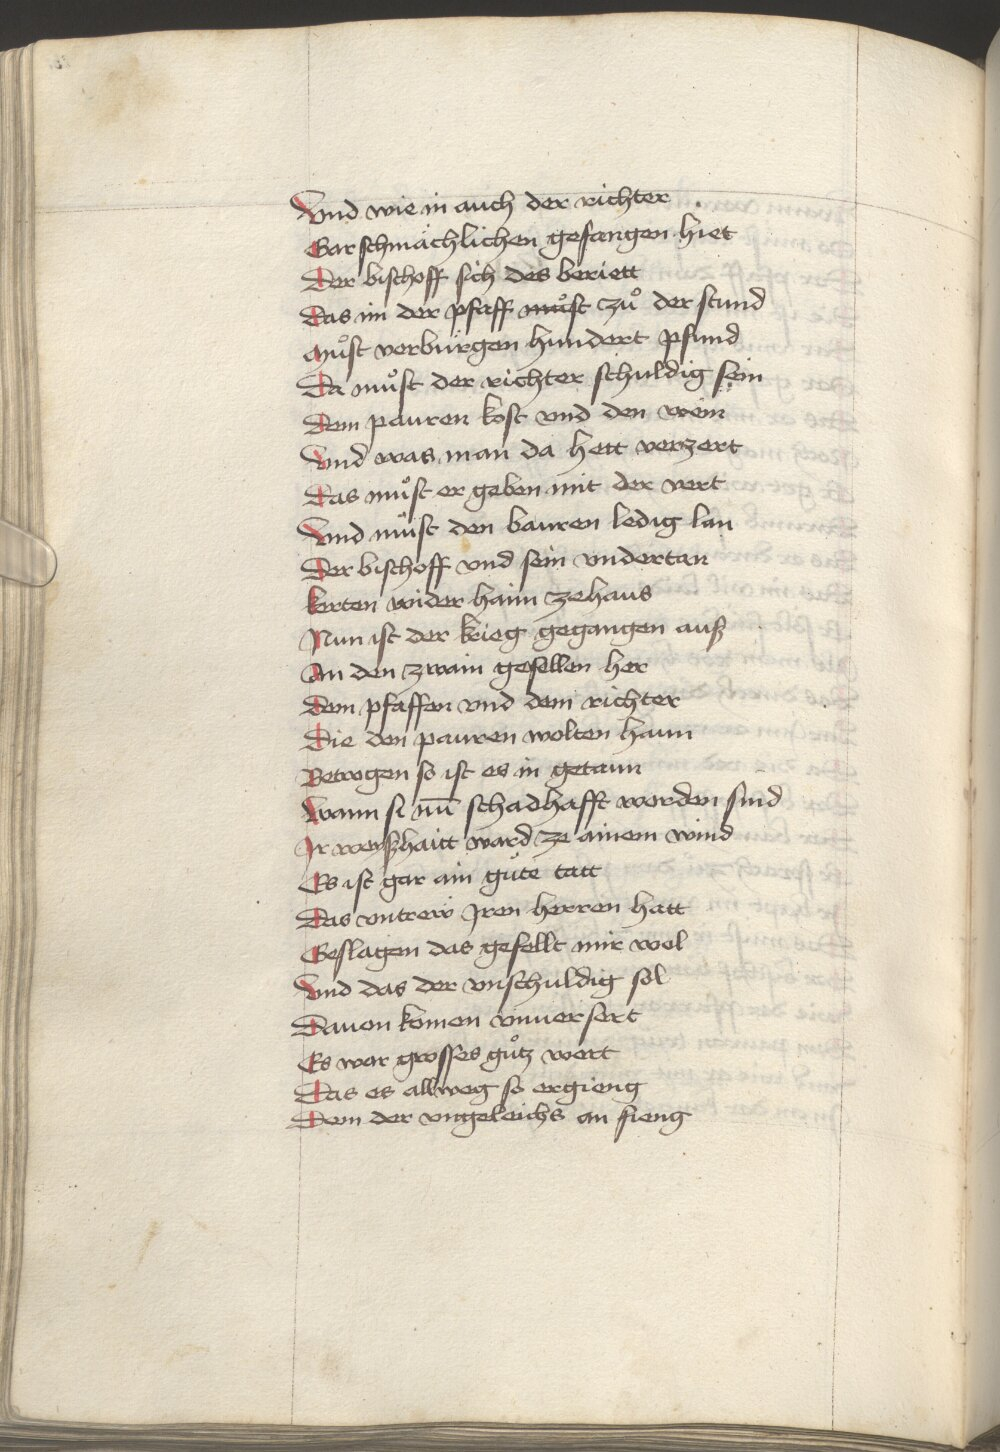 Vnd wie in auch der richter
Gar schmächlichen gefangen hiet
Der bischoff sich des beriett
Das im der pfaff muͦst zuͦ der stund
Muͦst verbürgen hundert pfund
Da muͦst der richter schuldig sein
Dem pauren kost vnd den wein
Vnd was man da hett verzert
Das muͦst er geben mit der vert
Vnd müst den bauren ledig lan
Der bischoff vnd sein vndertan
kerten wider haim zehaus
Nun ist der krieg gegangen auß
An den zwain gesellen her
Dem pfaffen vnd dem richter
Die den pauren wolten haun
Betrogen so ist es in getaun
Wann si nu̅ schadhafft worden sind
Ir weyßhaitt ward ze ainem wind
Es ist gar ain guͦte tatt
Das vntrew Iren herren hatt
Geslagen das gefellt mir wol
Vnd das der vnschuldig sol
Dauon komen vnuersert
Es war grosses guͦtz wert
Das es allweg so ergieng
Dem der vngeleichs an fieng